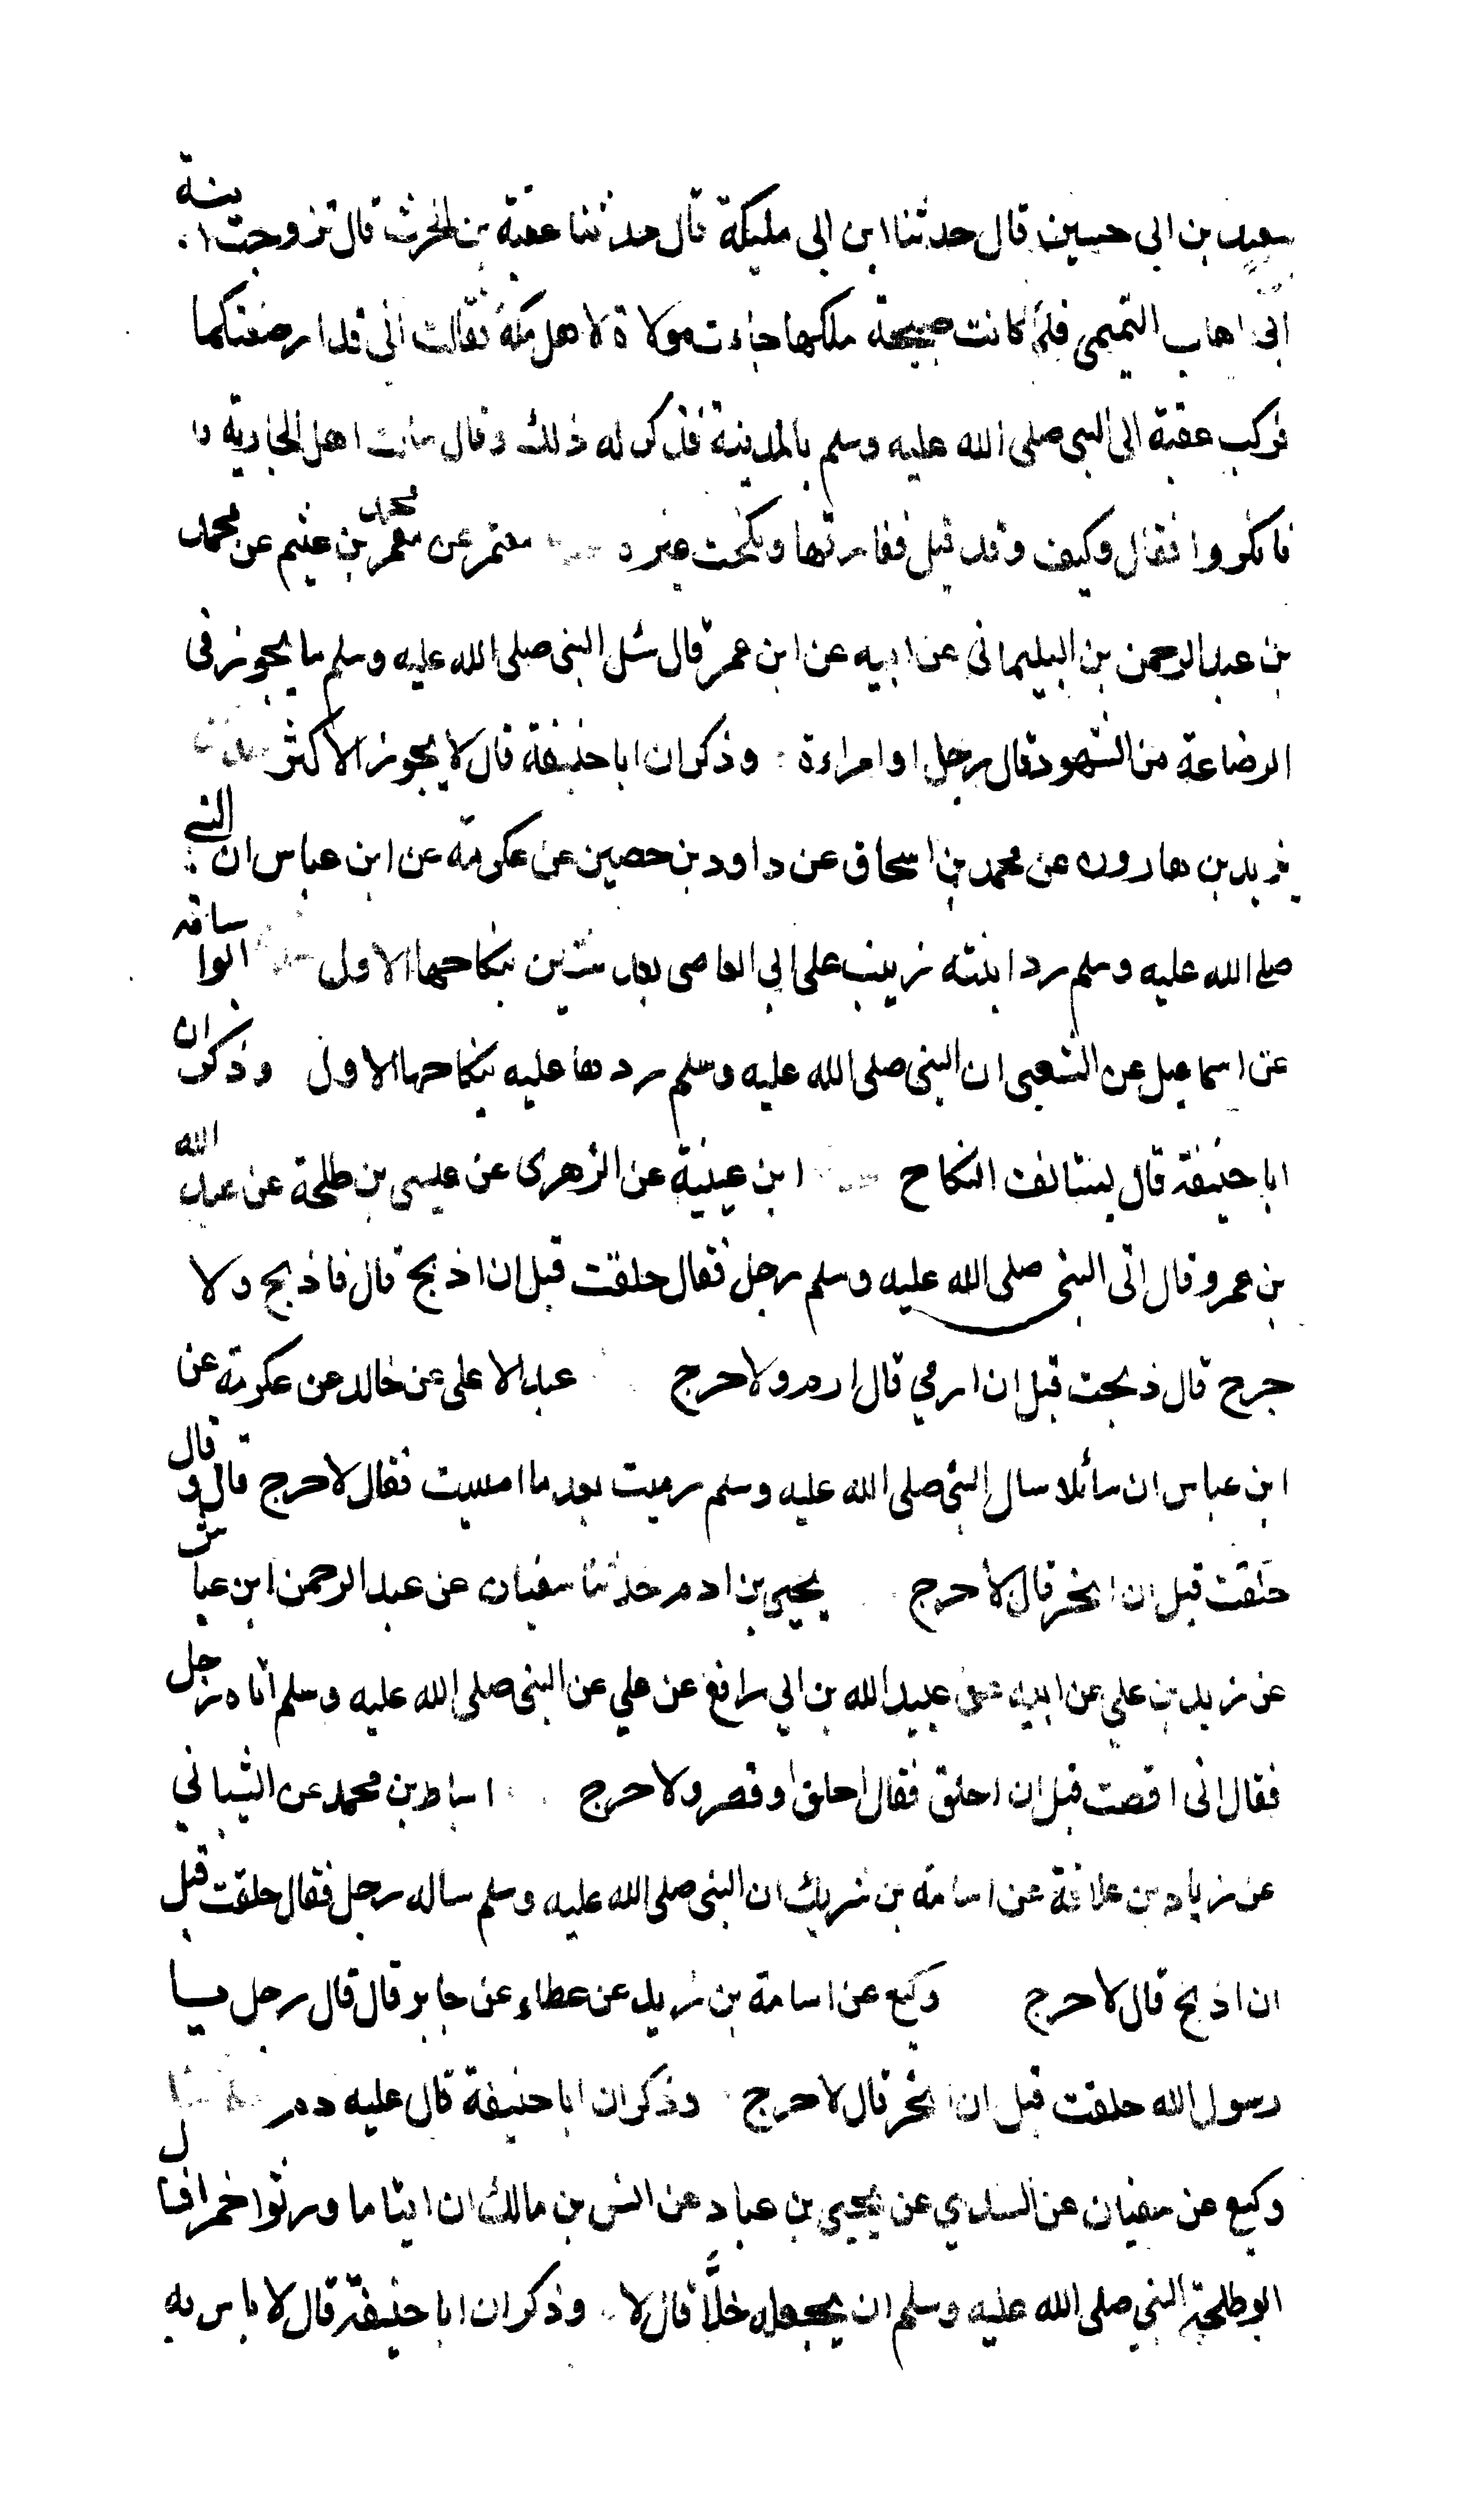 سعيد بن ابى حسين قال حدثنا ابن ابى مليكة قال حدثنا عقبة بن الحرث قال تزوجت ابنة
ابى اهاب التميمى فلما كانت صبيحة ملكها جاءت مولاة لاهل مكة فقالت انى قد ارضعتكما
فركب عقبة الى النبى صلى الله عليه وسلم بالمدينة فذكر له ذلك وقال سالت اهل الجارية
فانكروا فقال وكيف وقد قيل ففارقها ونكحت غيره حدثنا معتمر عن محمد بن عثيم عن محمد
بن عبد الرحمن بن البيلمانى عن ابيه عن ابن عمر قال سئل النبى صلى الله عليه وسلم ما يجوز فى
الرضاعة من الشهود قال رجل او امراءة وذكر ان ابا حنيفة قال لا يجوز الا كثر حدثنا
يزيد بن هارون عن محمد بن اسحاق عن داود بن حصين عن عكرمة عن ابن عباس ان النبى
صلى الله عليه وسلم رد ابنته زينب على ابى العاصى بعد سنتين بنكاحها الاول حدثنا ابو اسامة
عن اسماعيل عن الشعبى ان النبى صلى الله عليه وسلم ردها عليه بنكاحها الاول وذكر ان
ابا حنيفة قال يستانف النكاح حدثنا ابن عيينة عن الزهرى عن عيسى بن طلحة عن عبد الله
بن عمرو قال اتى النبى صلى الله عليه وسلم رجل فقال حلقت قبل ان اذبح قال فاذبح ولا
حرج قال ذبحت قبل ان ارمي قال ارم ولا حرج عبد الاعلى عن خالد عن عكرمة عن
ابن عباس ان سائلا سال النبى صلى الله عليه وسلم رميت بعد ما امسيت فقال لا حرج قال وقال
حلقت قبل ان انحر قال لا حرج يحيى بن ادم حدثنا سفيان عن عبد الرحمن ابن عياش
عن زيد بن علي عن ابيه عن عبيد الله بن ابي رافع عن علي عن النبى صلى الله عليه وسلم اتاه رجل
فقال انى افضت قبل ان احلق فقال احلق او قصر ولا حرج اسباط بن محمد عن الشيباني
عن زياد بن علاقة عن اسامة بن شريك ان النبى صلى الله عليه وسلم ساله رجل فقال حلقت قبل
ان اذبح قال لا حرج وكيع عن اسامة بن زيد عن عطاء عن جابر قال قال رجل يا
رسول الله حلقت قبل ان انحر قال لا حرج وذكر ان ابا حنيفة قال عليه دم حدثنا
وكيع عن سفيان عن السدي عن يحيى بن عباد عن انس بن مالك ان ايتاما ورثوا خمرا فسال
ابو طلحة النبي صلى الله عليه وسلم ان يجعله خلًّا قال لا وذكر ان ابا حنيفة قال لا باس به